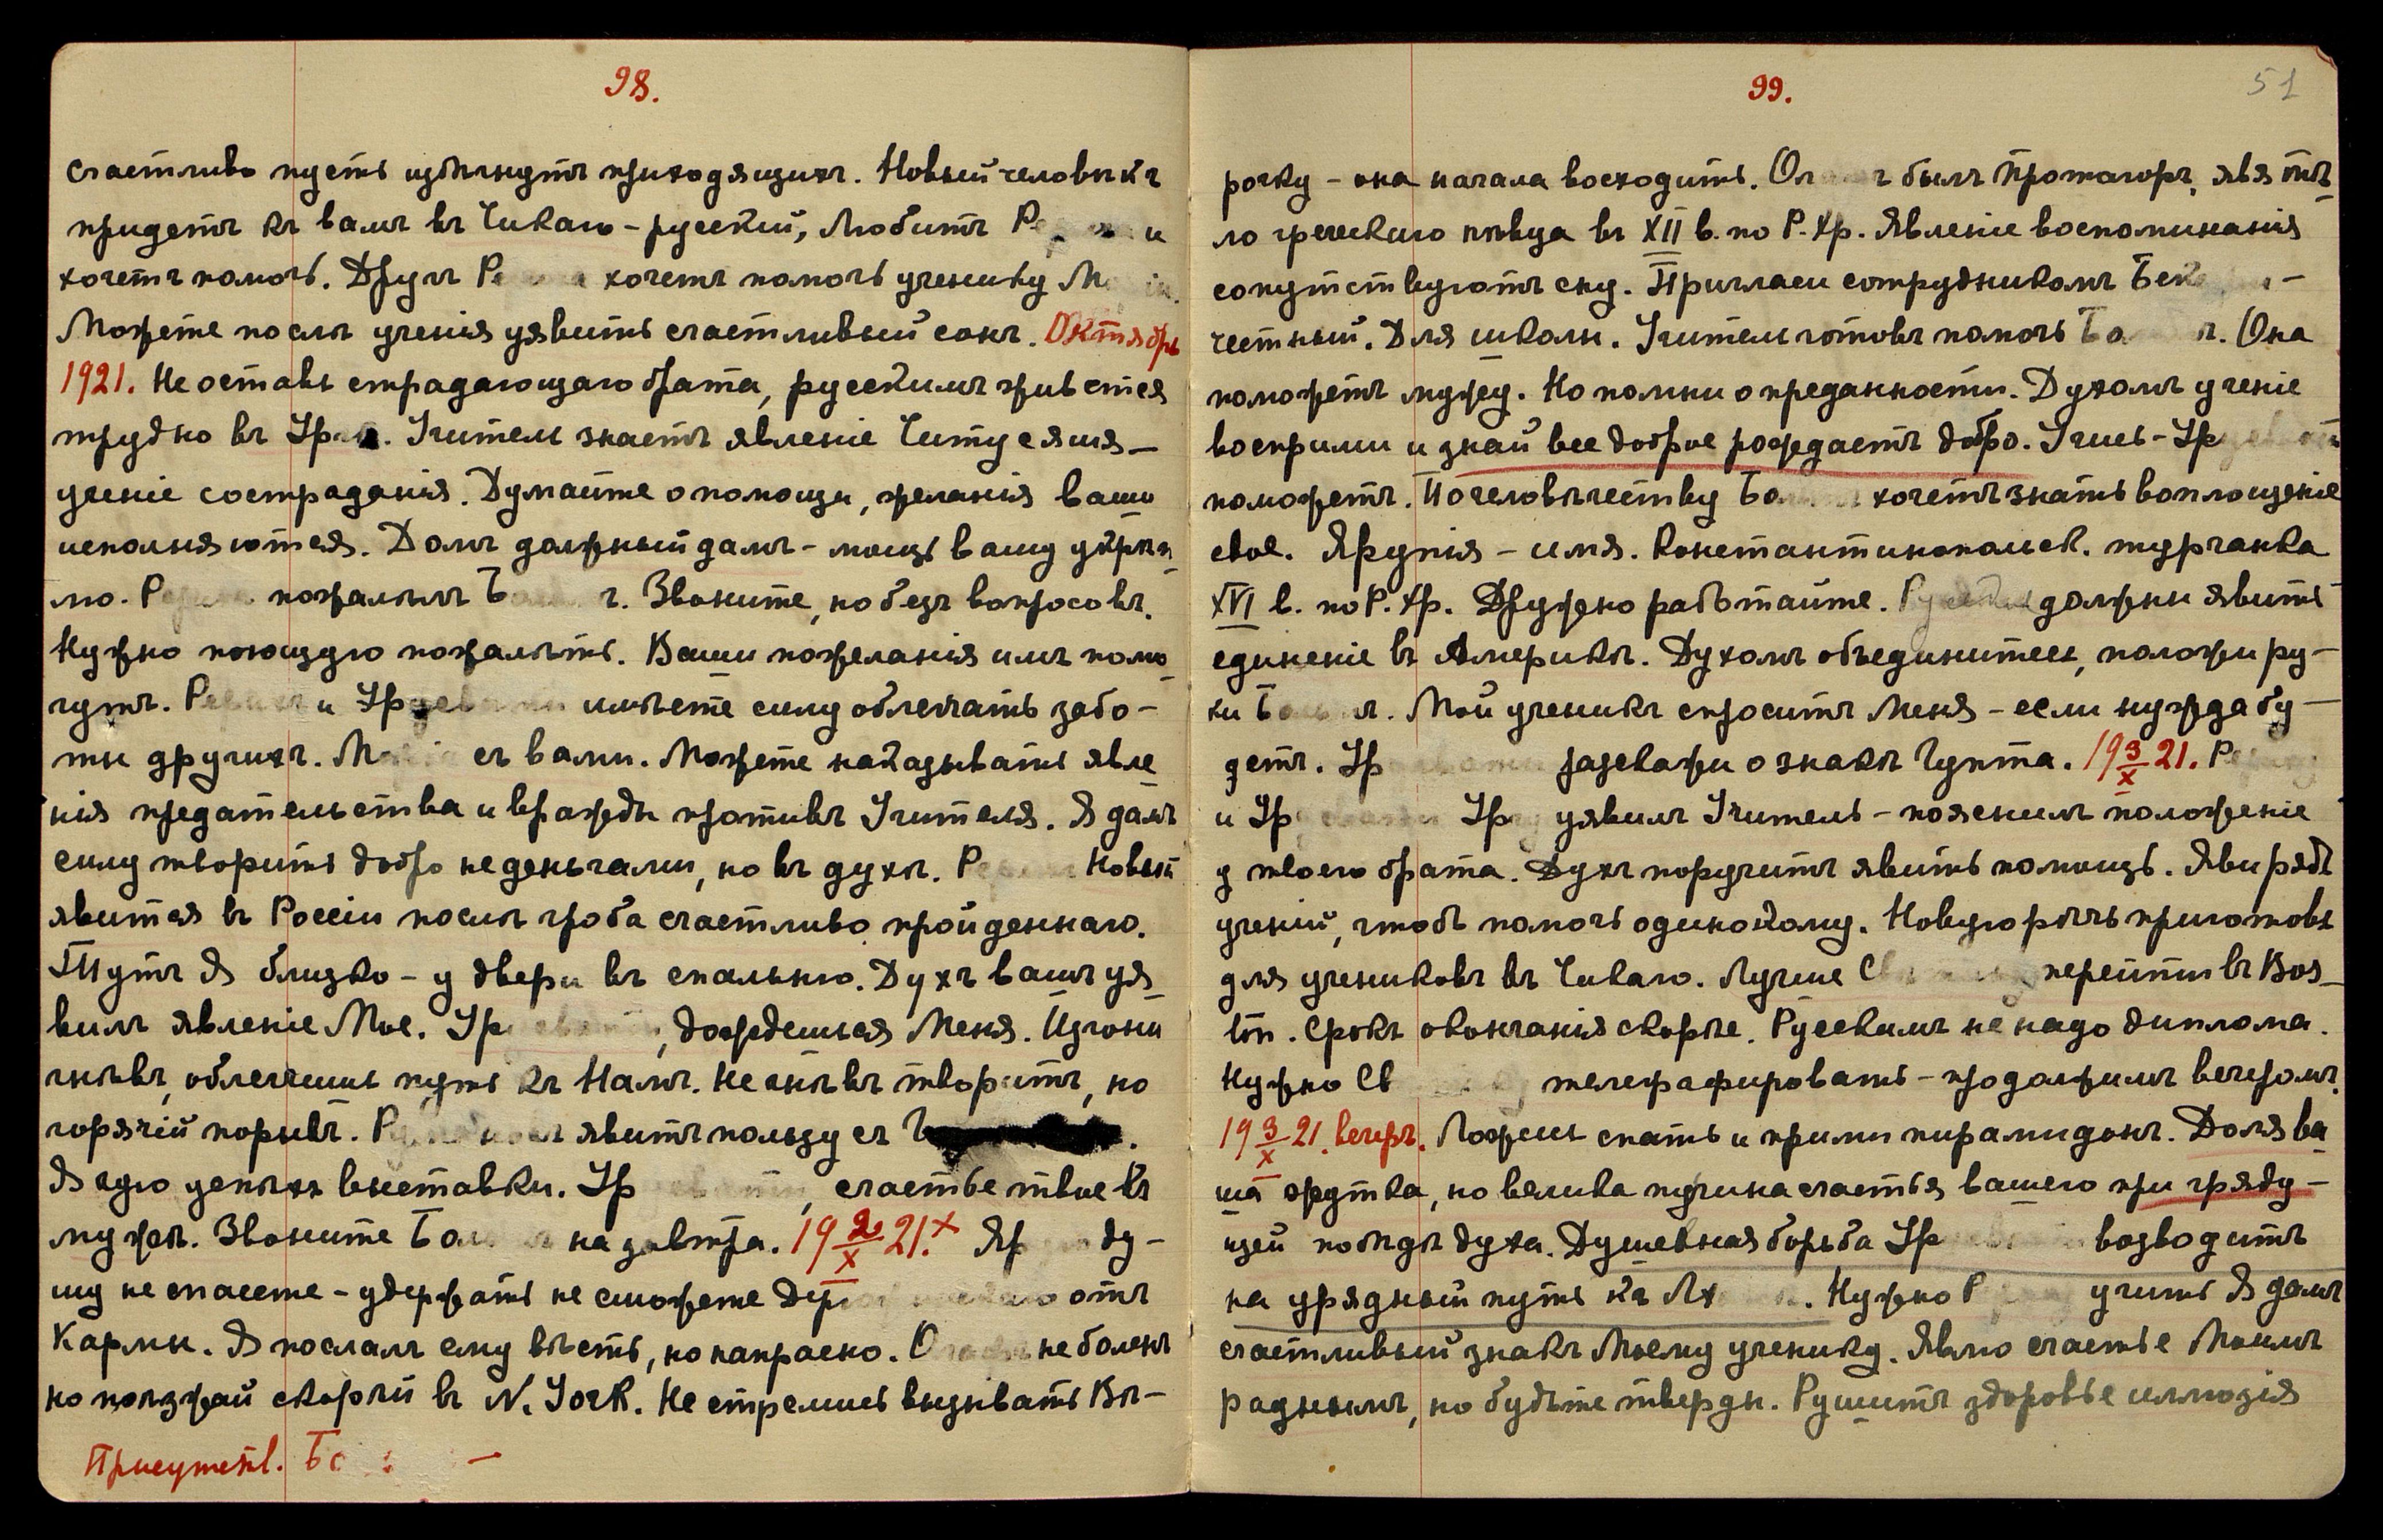 98.
счастливо пусть избѣгнутъ приходящихъ. Новый человѣкъ
придетъ къ вамъ въ Чикаго – русскій, любитъ и
хочетъ помочь. Другъ хочетъ помочь ученику
Можете послѣ ученія уявить счастливый сонъ. Октябрь
1921. Не оставь страдающаго брата, русскимъ живется
трудно въ Учитель знаетъ явленіе Читусяшя –
ученіе состраданія. Думайте о помощи, желанія ваши
исполняются. Домъ должный дамъ – мощь вашу укрѣп-
лю. пожалѣлъ Звоните, но безъ вопросовъ.
Нужно поющую пожалѣть. Ваши пожеланія имъ помо-
гутъ. и имѣете силу облегчать забо-
ты другихъ. съ вами. Можете наказывать явле
нія предательства и вражды противъ Учителя. Я далъ
силу творить добро не деньгами, но въ духѣ. Новый
явится въ Россіи послѣ гроба счастливо пройденнаго.
Тутъ Я близко – у двери въ спальню. Духъ вашъ уя-
вилъ явленіе Мое. , дождешься Меня. Изгони
гнѣвъ, облегчишь путь къ Намъ. Не гнѣвъ творитъ, но
горячій порывъ. явитъ пользу съ
Я чую успѣхъ выставки. , счастье твое въ
мужѣ. Звоните на завтра. 19 2/X 21.+ ду-
шу не спасете – удержать не сможете отъ
Кармы. Я послалъ ему вѣсть, но напрасно. не боленъ
но поѣзжай скорѣй въ N. York. Не стремись вызывать Вѣ-
Присутств. –
99.
51
рочку – она начала восходить. былъ Протагоръ, явя тѣ-
ло греческаго пѣвца въ XII в. по Р. Хр. Явленіе воспоминанія
сопутствуютъ сну. Пригласи сотрудникомъ –
честный. Для школы. Учитель готовъ помочь Она
поможетъ мужу. Но помни о преданности. Духомъ ученіе
восприми и знай все доброе рождаетъ добро. Учись –
поможетъ. По человѣчеству хочетъ знать воплощеніе
свое. Яругія – имя. Константинопольск. турчанка
XVI в. по Р. Хр. Дружно работайте. должны явить
единеніе въ Америкѣ. Духомъ объединитесь, положи ру-
ки Мой ученикъ спроситъ Меня – если нужда бу-
детъ. разскажи о знакѣ Гупта. 19 3/X 21.
и уявилъ Учитель – пояснилъ положеніе
у твоего брата. Духъ поручитъ явить помощь. Яви рядъ
ученій, чтобъ помочь одинокому. Новую рѣчь приготовь
для учениковъ въ Чикаго. Лучше перейти въ Bos-
ton. Срокъ окончанія скорѣе. Русскимъ не надо диплома.
Нужно телеграфировать – продолжимъ вечеромъ.
19 3/X 21. вечеръ. Ложись спать и прими пирамидонъ. Доля ва-
ша жутка, но велика пучина счастья вашего при гряду-
щей побѣдѣ духа. Душевная борьба возводитъ
на урядный путь къ Нужно учить Я далъ
счастливый знакъ Моему ученику. Явлю счастье Моимъ
роднымъ, но будьте тверды. Рушитъ здоровье иллюзія